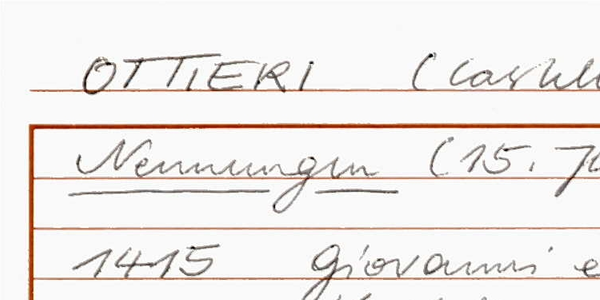 OTTIERI (Castell
Nennungen (15. Jh
1415 Giovanni e